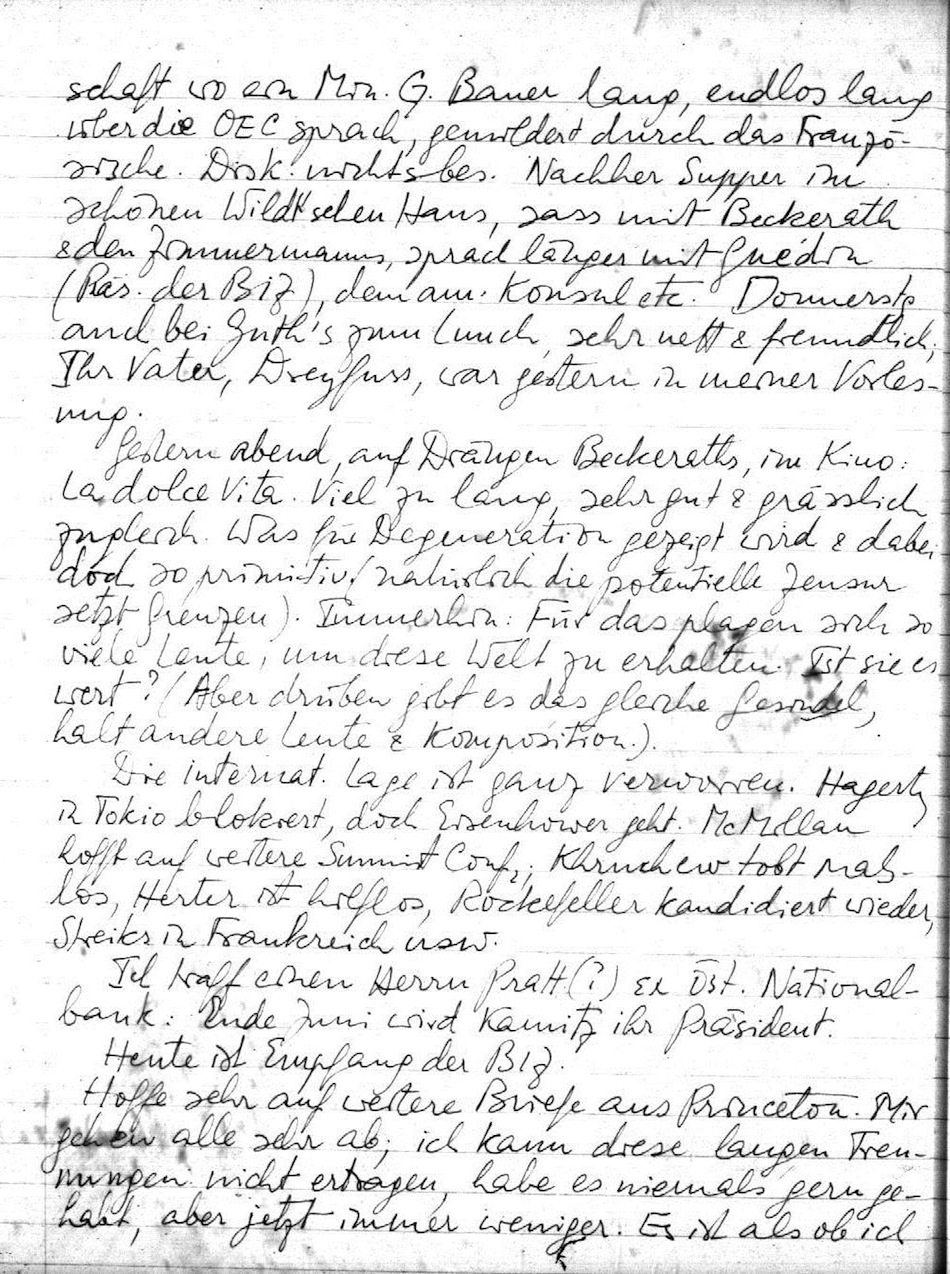 schaft wo ein Min. G. Bauer lang, endlos lang
über die OEC sprach, gemildert durch das Franzö-
sische. Disk. nichts bes. Nachher Supper im
schönen Wildt'schen Haus, sass mit Beckerath
& den Zimmermanns, sprach länger mit Guédin
(Präs. der BIZ), dem am. Konsul etc. Donnerstg
and bei Guth's zum Lunch, sehr nett & freundlich;
Ihr Vater, Dreyfuss, war gestern in meiner Vorles-
ung.
Gestern abend, auf Drängen Beckeraths, im Kino:
La dolce Vita. Viel zu lang, sehr gut & grässlich
zugleich. Was für Degeneration gezeigt wird & dabei
doch so primitiv (natürlich die potentielle Zensur
setzt Grenzen). Immerhin: Für das plagen sich so
viele Leute, um diese Welt zu erhalten. Ist sie es
wert? (Aber drüben gibt es das gleiche Gesindel,
halt andere Leute & Komposition.).
Die internat. Lage ist ganz verworren. Hagerty
in Tokio blokiert, doch Eisenhower geht. McMillan
hofft auf weitere Summit Conf.; Khruchew tobt mass-
los, Herter ist hilflos, Rockefeller kandidiert wieder,
Streiks in Frankreich usw.
Ich traff einen Herrn Pratt (?) ex Öst. National-
bank: Ende Juni wird Kamitz ihr Präsident.
Heute ist Empfang der BIZ.
Hoffe sehr auf weitere Briefe aus Princeton. Mir
gehen alle sehr ab; ich kann diese langen Tren-
nungen nicht ertragen, habe es niemals gern ge-
habt, aber jetzt immer weniger. Es ist als ob ich